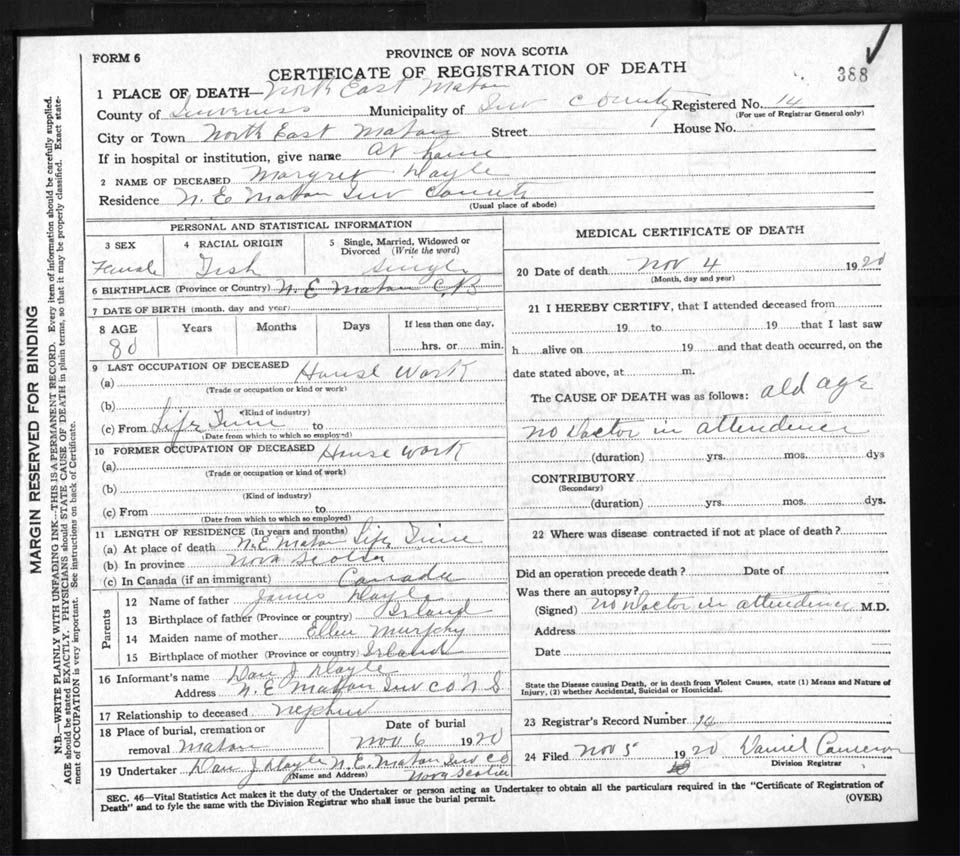 FORM 6
PROVINCE OF NOVA SCOTIA
CERTIFICATE OF REGISTRATION OF DEATH
388
1 PLACE OF DEATH—North East Mabou
County of Inverness Municipality of Inv County Registered No. 14
(For use of Registrar General only)
City or Town North East Mabou Street House No.
If in hospital or institution, give name At home
2 NAME OF DECEASED Margret Doyle
Residence N. E Mabou Inv County
(Usual place of abode)
PERSONAL AND STATISTICAL INFORMATION
3 SEX Female
4 RACIAL ORIGIN Irsh
5 Single, Married, Widowed or Divorced (Write the word) Single
6 BIRTHPLACE (Province or Country) N. E Mabou C. B
7 DATE OF BIRTH (month, day and year)
8 AGE Years Months Days If less than one day,
80 hrs. or min.
9 LAST OCCUPATION OF DECEASED House Work
(a)
(Trade or occupation or kind or work)
(b)
(Kind of industry)
(c) From Life Time to
(Date from which to which so employed)
10 FORMER OCCUPATION OF DECEASED House work
(a)
(Trade or occupation or kind of work)
(b)
(Kind of industry)
(c) From to
(Date from which to which so employed)
11 LENGTH OF RESIDENCE (In years and months)
(a) At place of death N. E Mabou Life Time
(b) In province Nova Scotia
(c) In Canada (if an immigrant) Canada
Parents
12 Name of father James Doyle
13 Birthplace of father (Province or country) Irland
14 Maiden name of mother Ellen Murphy
15 Birthplace of mother (Province or country) Irland
16 Informant's name Dan J Doyle
Address N. E Mabou Inv CO N S
17 Relationship to deceased Nephew
18 Place of burial, cremation or Date of burial
removal Mabou Nov 6 1920
19 Undertaker Dan J Doyle N. E. Mabou Inv CO
(Name and Address) Nova Scotia
MEDICAL CERTIFICATE OF DEATH
20 Date of death Nov 4 1920
(Month, day and year)
21 I HEREBY CERTIFY, that I attended deceased from
19 to 19 that I last saw
h alive on 19 and that death occurred, on the
date stated above, at m.
The CAUSE OF DEATH was as follows: old age
no Doctor in attendence
(duration) yrs. mos. dys
CONTRIBUTORY
(Secondary)
(duration) yrs. mos. dys.
22 Where was disease contracted if not at place of death?
Did an operation precede death? Date of
Was there an autopsy?
(Signed) No Doctor in attendence M.D.
Address
Date
State the Disease causing Death, or in death from Violent Causes, state (1) Means and Nature of
Injury, (2) whether Accidental, Suicidal or Homicidal.
23 Registrar's Record Number
24 Filed Nov 5 1920 Daniel Cameron
Division Registrar
SEC. 46—Vital Statistics Act makes it the duty of the Undertaker or person acting as Undertaker to obtain all the particulars required in the "Certificate of Registration of
Death" and to fyle the same with the Division Registrar who shall issue the burial permit.
(OVER)
MARGIN RESERVED FOR BINDING
N.B.—WRITE PLAINLY WITH UNFADING INK—THIS IS A PERMANENT RECORD. Every item of information should be carefully supplied.
AGE should be stated EXACTLY. PHYSICIANS should STATE CAUSE OF DEATH in plain terms, so that it may be properly classified. Exact state-
ment of OCCUPATION is very important. See instructions on back of Certificate.